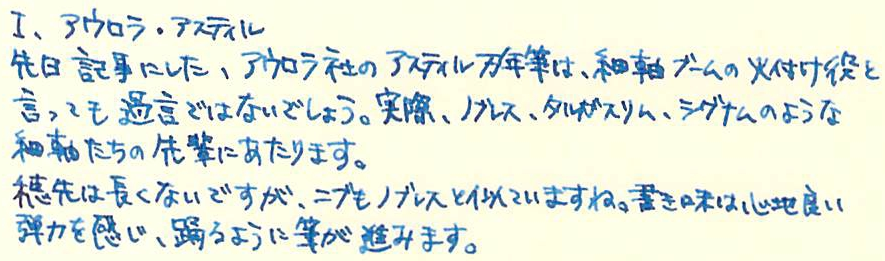 I、アウロラ・アスティル
先日記事にした、アウロラ社のアスティル万年筆は、細軸ブームの火付け役と
言っても過言ではないでしょう。実際、ノブレス、タルガスリム、シグナムのような
細軸たちの先輩にあたります。
穂先は長くないですが、ニブもノブレスと似ていますね。書き味は心地良い
弾力を感じ、踊るように筆が進みます。